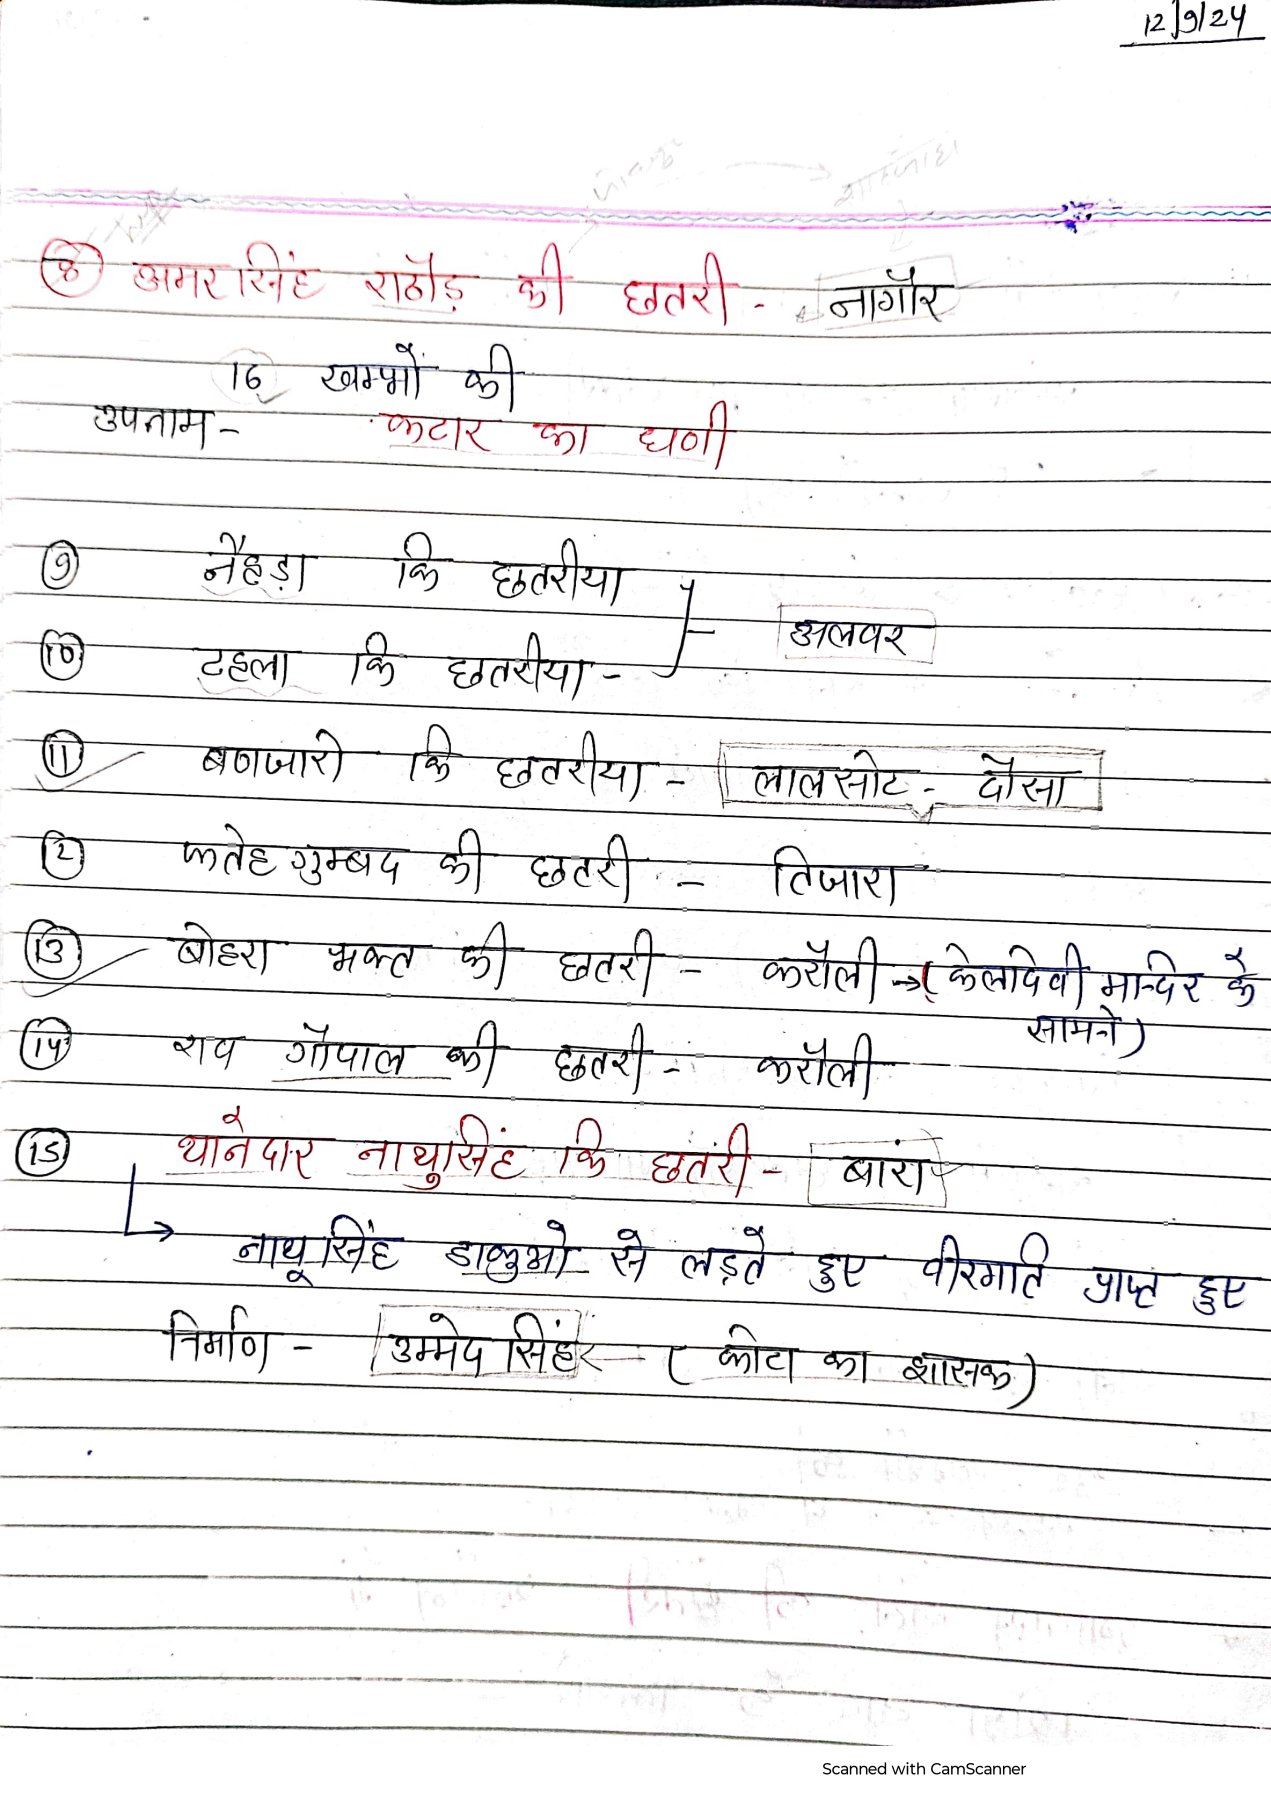 12/9/24
⑧ अमरसिंह राठौड़ की छतरी - नागौर
16 खम्भों की
उपनाम - कटार का धणी
⑨ नैहड़ा कि छतरीया
अलवर
⑩ टहला कि छतरीया -
⑪ बणजारो कि छतरीया - लालसोट - दौसा
⑫ फतेह गुम्बद की छतरी - तिजारा
⑬ बोहरा भक्त की छतरी - करौली → (केलादेवी मन्दिर के
सामने)
⑭ राव गोपाल की छतरी - करौली
⑮ थानेदार नाथुसिंह कि छतंरी - बारां
↳ नाथूसिंह डाकुओ से लड़ते हुए वीरगति प्राप्त हुए
निर्माण - उम्मेद सिंह - (कोटा का शासक)
Scanned with CamScanner